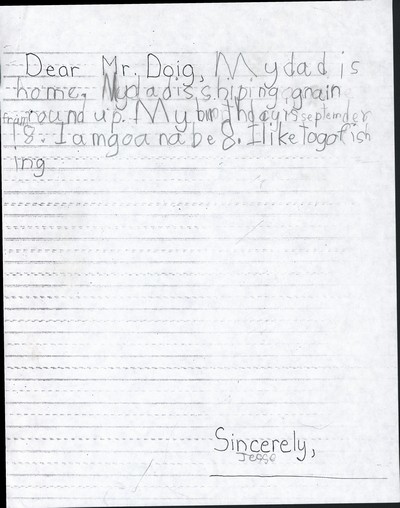 Dear Mr. Doig, My dad is
home. My dad is shiping gnain
fram round up. My birthday is septemder
18. I am goanabe 8. I like to go fish
ing
Sincerely,
Jesse